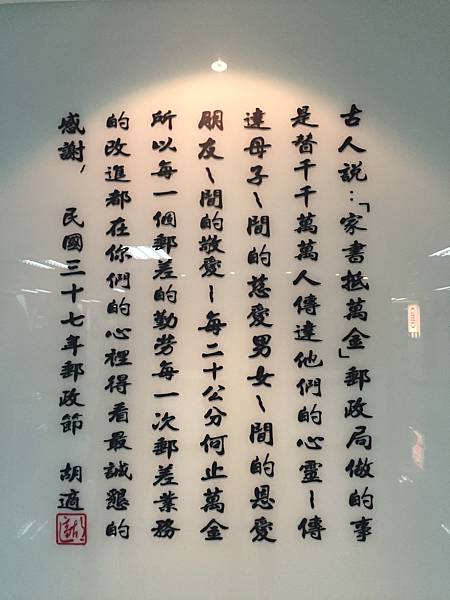 古人說：「家書抵萬金」郵政局做的事
是替千千萬萬人傳達他們的心靈～傳
達母子～間的慈愛男女～間的恩愛
朋友～間的敬愛～每二十公分何止萬金
所以每一個郵差的勤勞每一次郵差業務
的改進都在你們的心裡得着最誠懇的
感謝， 民國三十七年郵政節 胡適